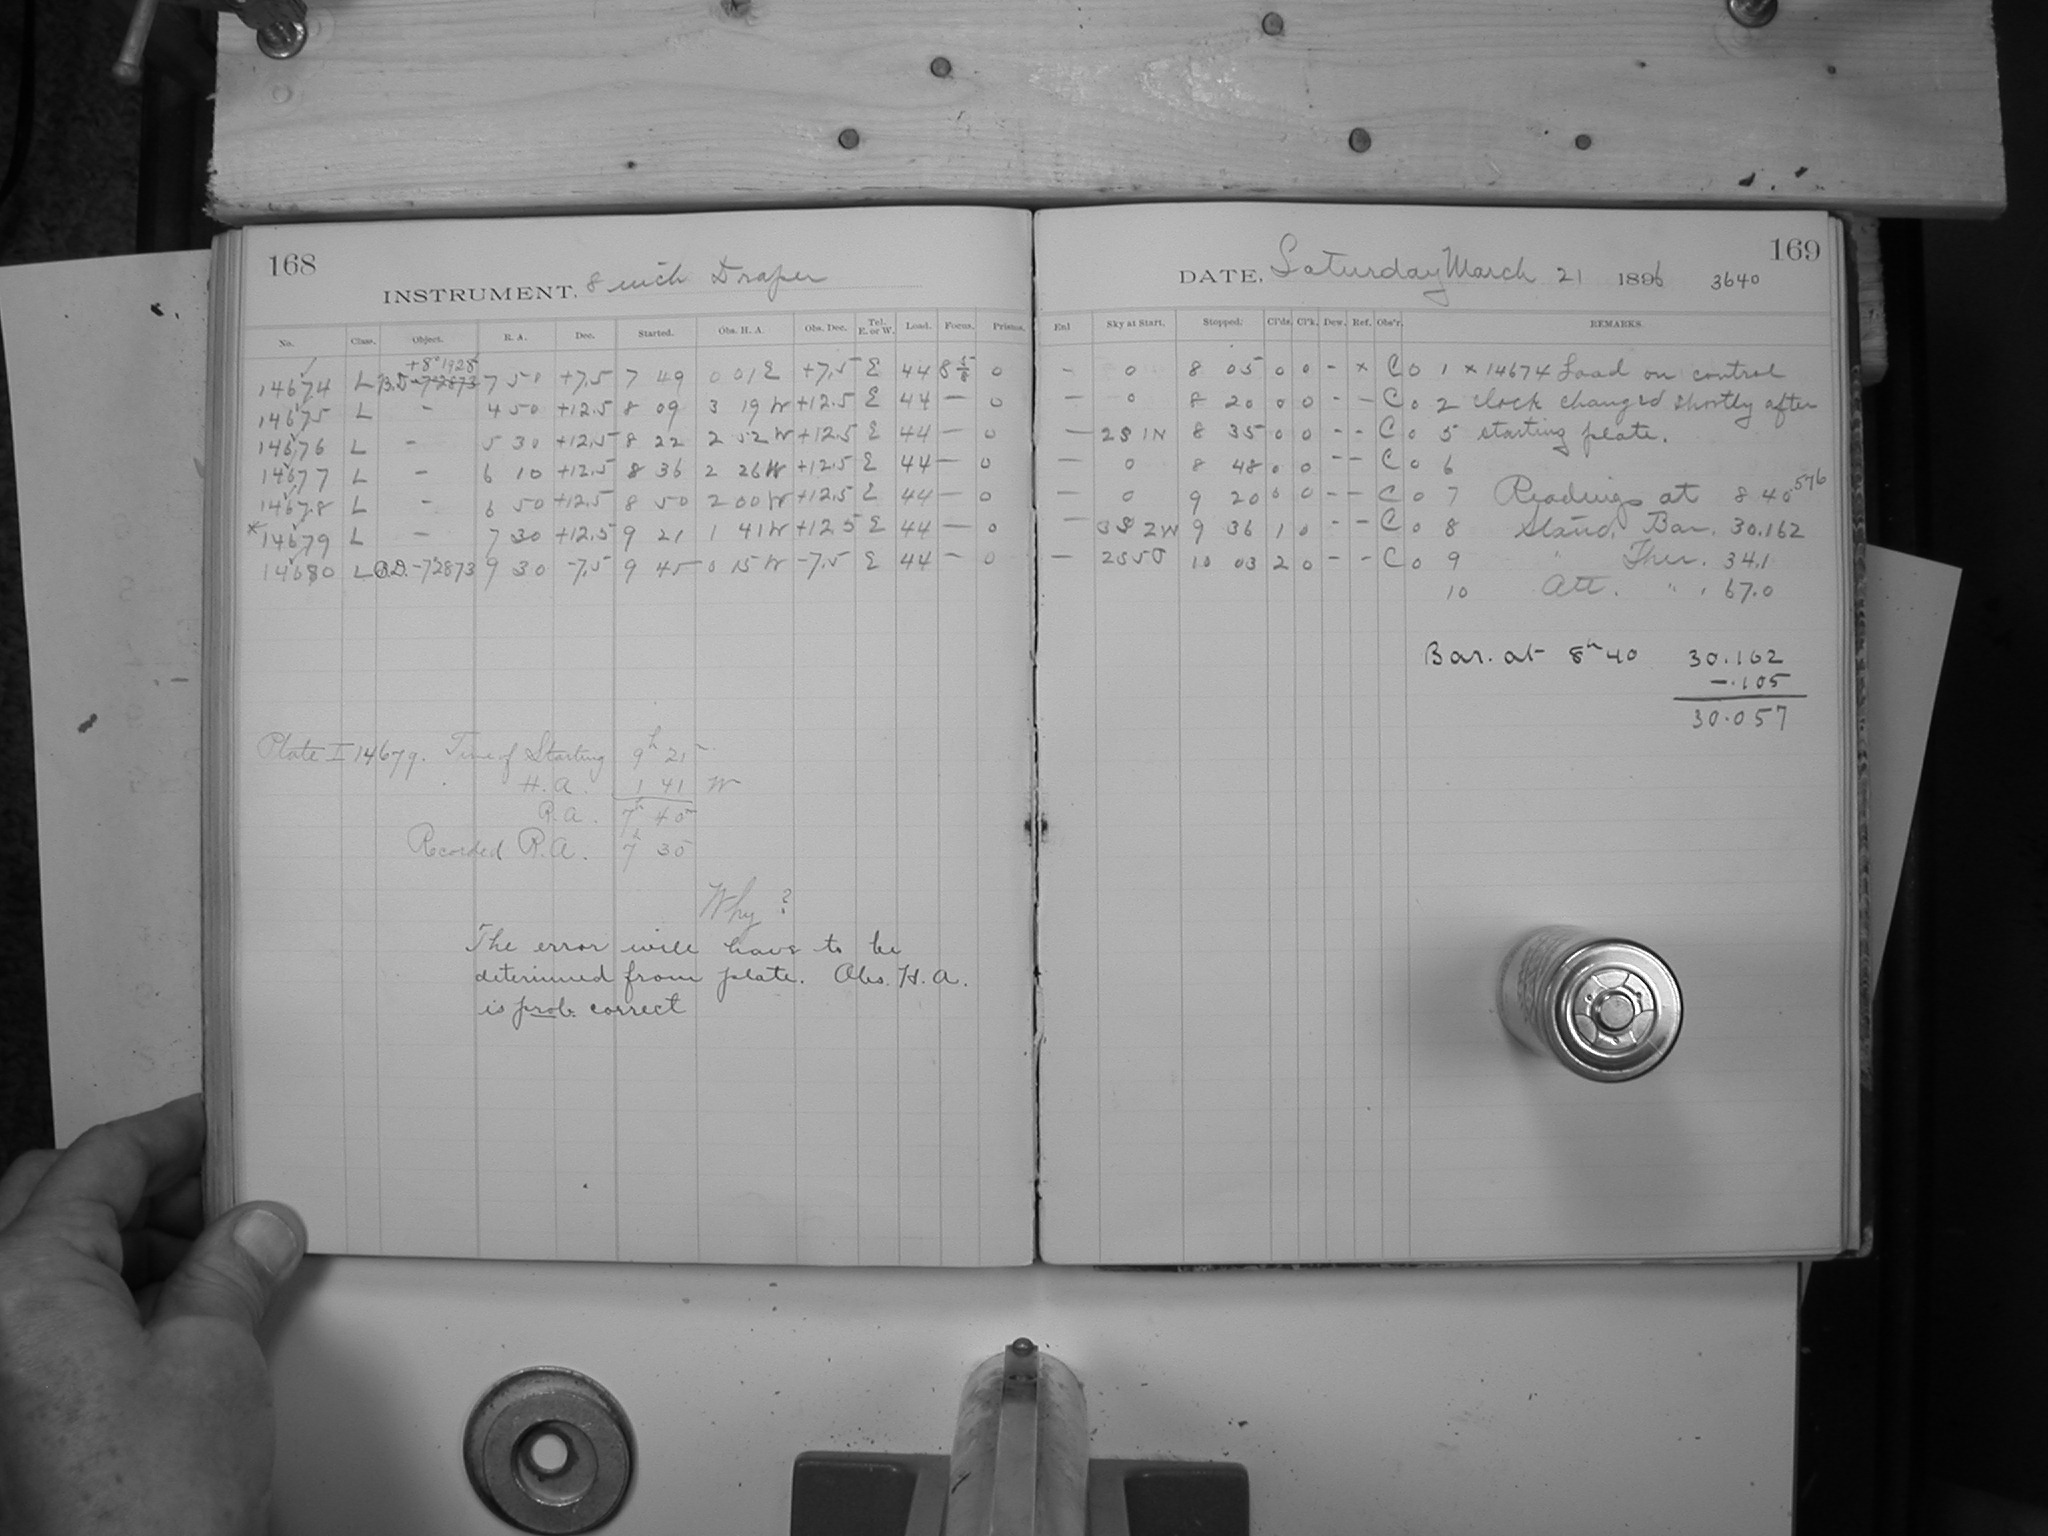 168
INSTRUMENT. 8 inch Draper
No. Class. Object. R. A. Dec. Started. Obs. H. A. Obs. Dec. Tel. E. or W. Load. Focus. Prisms.
+8° 1928
14674 L B.D. -7°2873 7 50 +7.5 7 49 0 01 E +7.5 E 44 8 5/8 0
14675 L - 4 50 +12.5 8 09 3 19 W +12.5 E 44 — 0
14676 L - 5 30 +12.5 8 22 2 52 W +12.5 E 44 — 0
14677 L - 6 10 +12.5 8 36 2 26 W +12.5 E 44 — 0
14678 L - 6 50 +12.5 8 50 2 00 W +12.5 E 44 — 0
* 14679 L - 7 30 +12.5 9 21 1 41 W +12 5 E 44 — 0
14680 L B.D. -7°2873 9 30 -7.5 9 45 0 15 W -7.5 E 44 — 0
Plate I 14679. Time of Starting 9h 21
H.A. 1 41 W
R.A. 7h 40
Recorded R.A. 7h 30
Why?
The error will have to be
determined from plate. Obs. H.A.
is prob. correct
169
DATE, Saturday March 21 1896 3640
Enl Sky at Start. Stopped. Cl'ds. Cl'k. Dew. Ref. Obs'r. REMARKS.
- 0 8 05 0 0 - x C 0 1 x 14674 Load on control
— 0 8 20 0 0 - - C 0 2 clock changed shortly after
— 2S 1N 8 35 0 0 - - C 0 5 starting plate.
— 0 8 48 0 0 - - C 0 6
— 0 9 20 0 0 - - C 0 7 Readings at 8 40 .576
— 3S 2W 9 36 1 0 - - C 0 8 Stand. Bar. 30.162
— 2S 5 10 03 2 0 - - C 0 9 " Ther. 34.1
10 Att. " " 67.0
Bar. at 8h 40 30.162
-.105
30.057